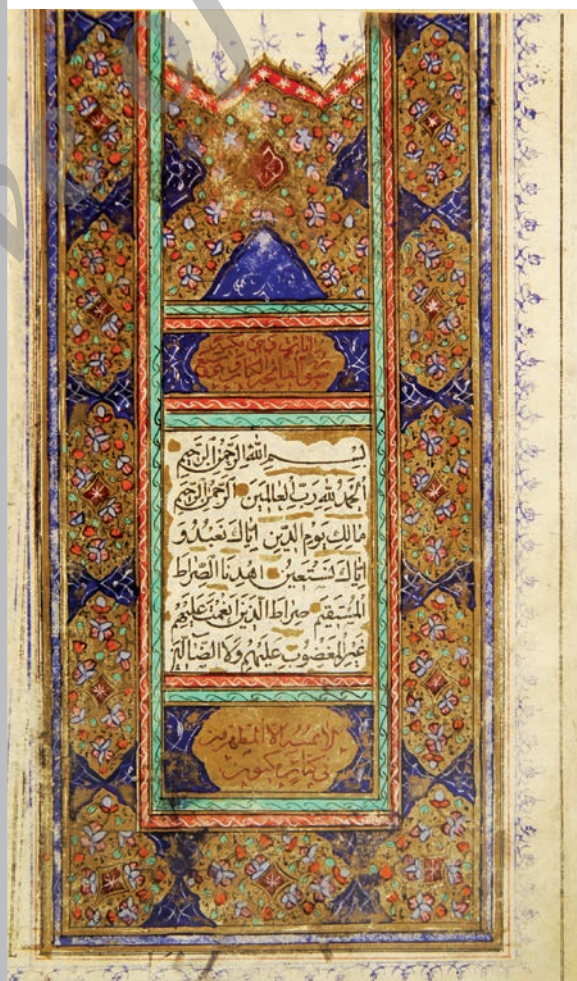 بِسْمِ اللهِ الرَّحْمٰنِ الرَّحِيمِ
اَلْحَمْدُ لِلّٰهِ رَبِّ الْعَالَمِينَ الرَّحْمٰنِ الرَّحِيمِ
مَالِكِ يَوْمِ الدِّينِ اِيَّاكَ نَعْبُدُ وَ
اِيَّاكَ نَسْتَعِينُ اِهْدِنَا الصِّرَاطَ
الْمُسْتَقِيمَ صِرَاطَ الَّذِينَ اَنْعَمْتَ عَلَيْهِمْ
غَيْرِ الْمَغْضُوبِ عَلَيْهِمْ وَلَا الضَّالِّينَ
لا يمسه الا المطهرون
في كتاب مكنون